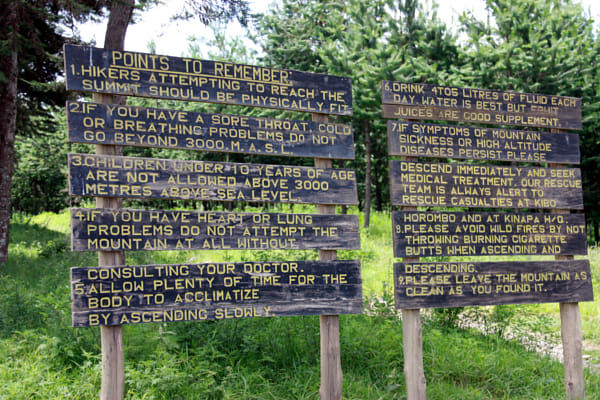 POINTS TO REMEMBER:
1.HIKERS ATTEMPTING TO REACH THE
SUMMIT SHOULD BE PHYSICALLY FIT
2.IF YOU HAVE A SORE THROAT, COLD
OR BREATHING PROBLEMS DO NOT
GO BEYOND 3000.M.A.S.L
3.CHILDREN UNDER 10 YEARS OF AGE
ARE NOT ALLOWED ABOVE 3000
METRES ABOVE SEA LEVEL
4.IF YOU HAVE HEART OR LUNG
PROBLEMS DO NOT ATTEMPT THE
MOUNTAIN AT ALL WITHOUT
CONSULTING YOUR DOCTOR.
5.ALLOW PLENTY OF TIME FOR THE
BODY TO ACCLIMATIZE
BY ASCENDING SLOWLY
6.DRINK 4TO5 LITRES OF FLUID EACH
DAY. WATER IS BEST BUT FRUIT
JUICES ARE GOOD SUPPLEMENT.
7.IF SYMPTOMS OF MOUNTAIN
SICKNESS OR HIGH ALTITUDE
DISEASES PERSIST PLEASE
DESCEND IMMEDIATELY AND SEEK
MEDICAL TREATMENT. OUR RESCUE
TEAM IS ALWAYS ALERT TO
RESCUE CASUALTIES AT KIBO
HOROMBO AND AT KINAPA H/Q
8.PLEASE AVOID WILD FIRES BY NOT
THROWING BURNING CIGARETTE
BUTTS WHEN ASCENDING AND
DESCENDING.
9.PLEASE LEAVE THE MOUNTAIN AS
CLEAN AS YOU FOUND IT.